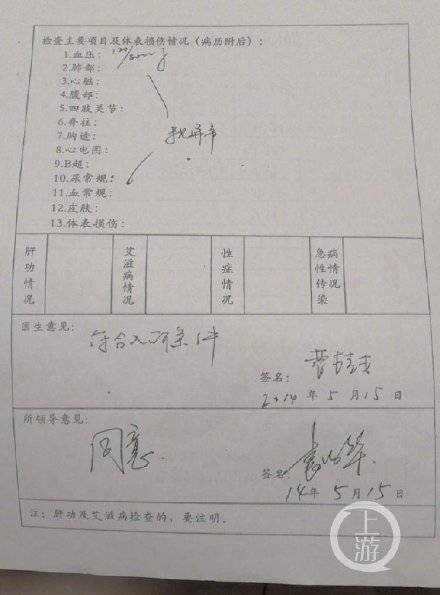 检查主要项目及体表损伤情况（病历附后）：
1.血压：
2.肺部：
3.心脏：
4.腹部：
5.四肢关节：
6.脊柱：
7.胸透：
8.心电图：
9.B超：
10.尿常规：
11.血常规：
12.皮肤：
13.体表损伤：
肝功情况
艾滋病情况
性症情况
急性传染病情况
医生意见：
符合入所条件
签名：
2014年5月15日
所领导意见：
同意
签名：
14年5月15日
注：肝功及艾滋病检查的，要注明。
上游